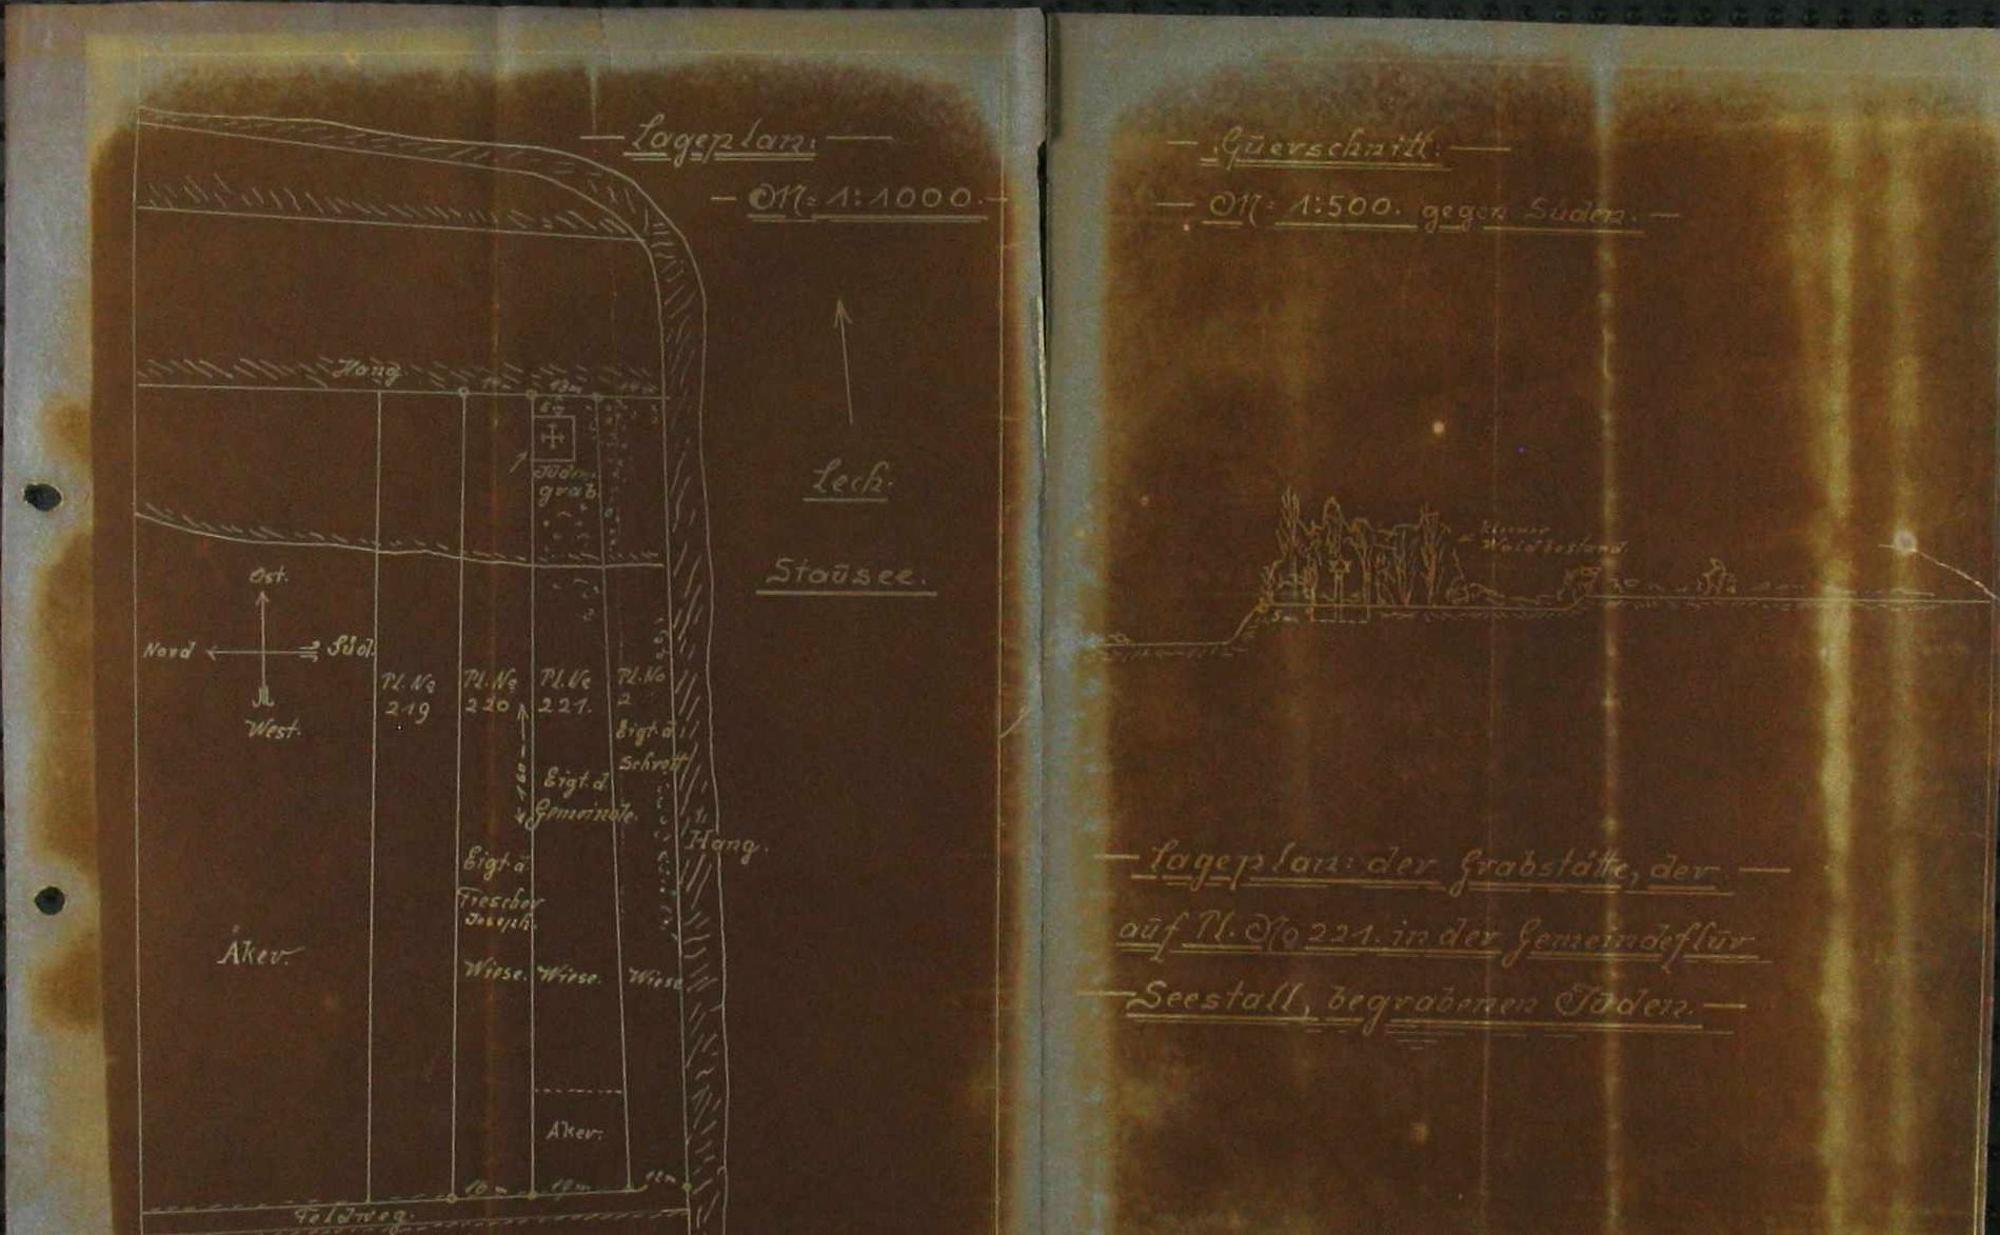 Lageplan:
M= 1:1000.
Hang
14m
13m
6m
Juden-
grab
Lech.
Staūsee.
Ost.
Nord
Süd.
West.
Pl. No
219
Pl. No
220
Pl. No
221.
Pl. No
2
160
Eigt. d.
Schrott
Eigt. d.
Gemeinde.
Hang.
Eigt. d.
Trescher
Joseph.
Äker.
Wiese.
Wiese.
Wiese
Aker.
16 m
19 m
12 m
Feldweg.
Qūerschnitt.
M= 1:500. gegen Süden.
kleiner
Waldbestand.
5m
Lageplan: der Grabstätte, der
aūf Pl. No 221. in der Gemeindeflūr
Seestall, begrabenen Jūden.